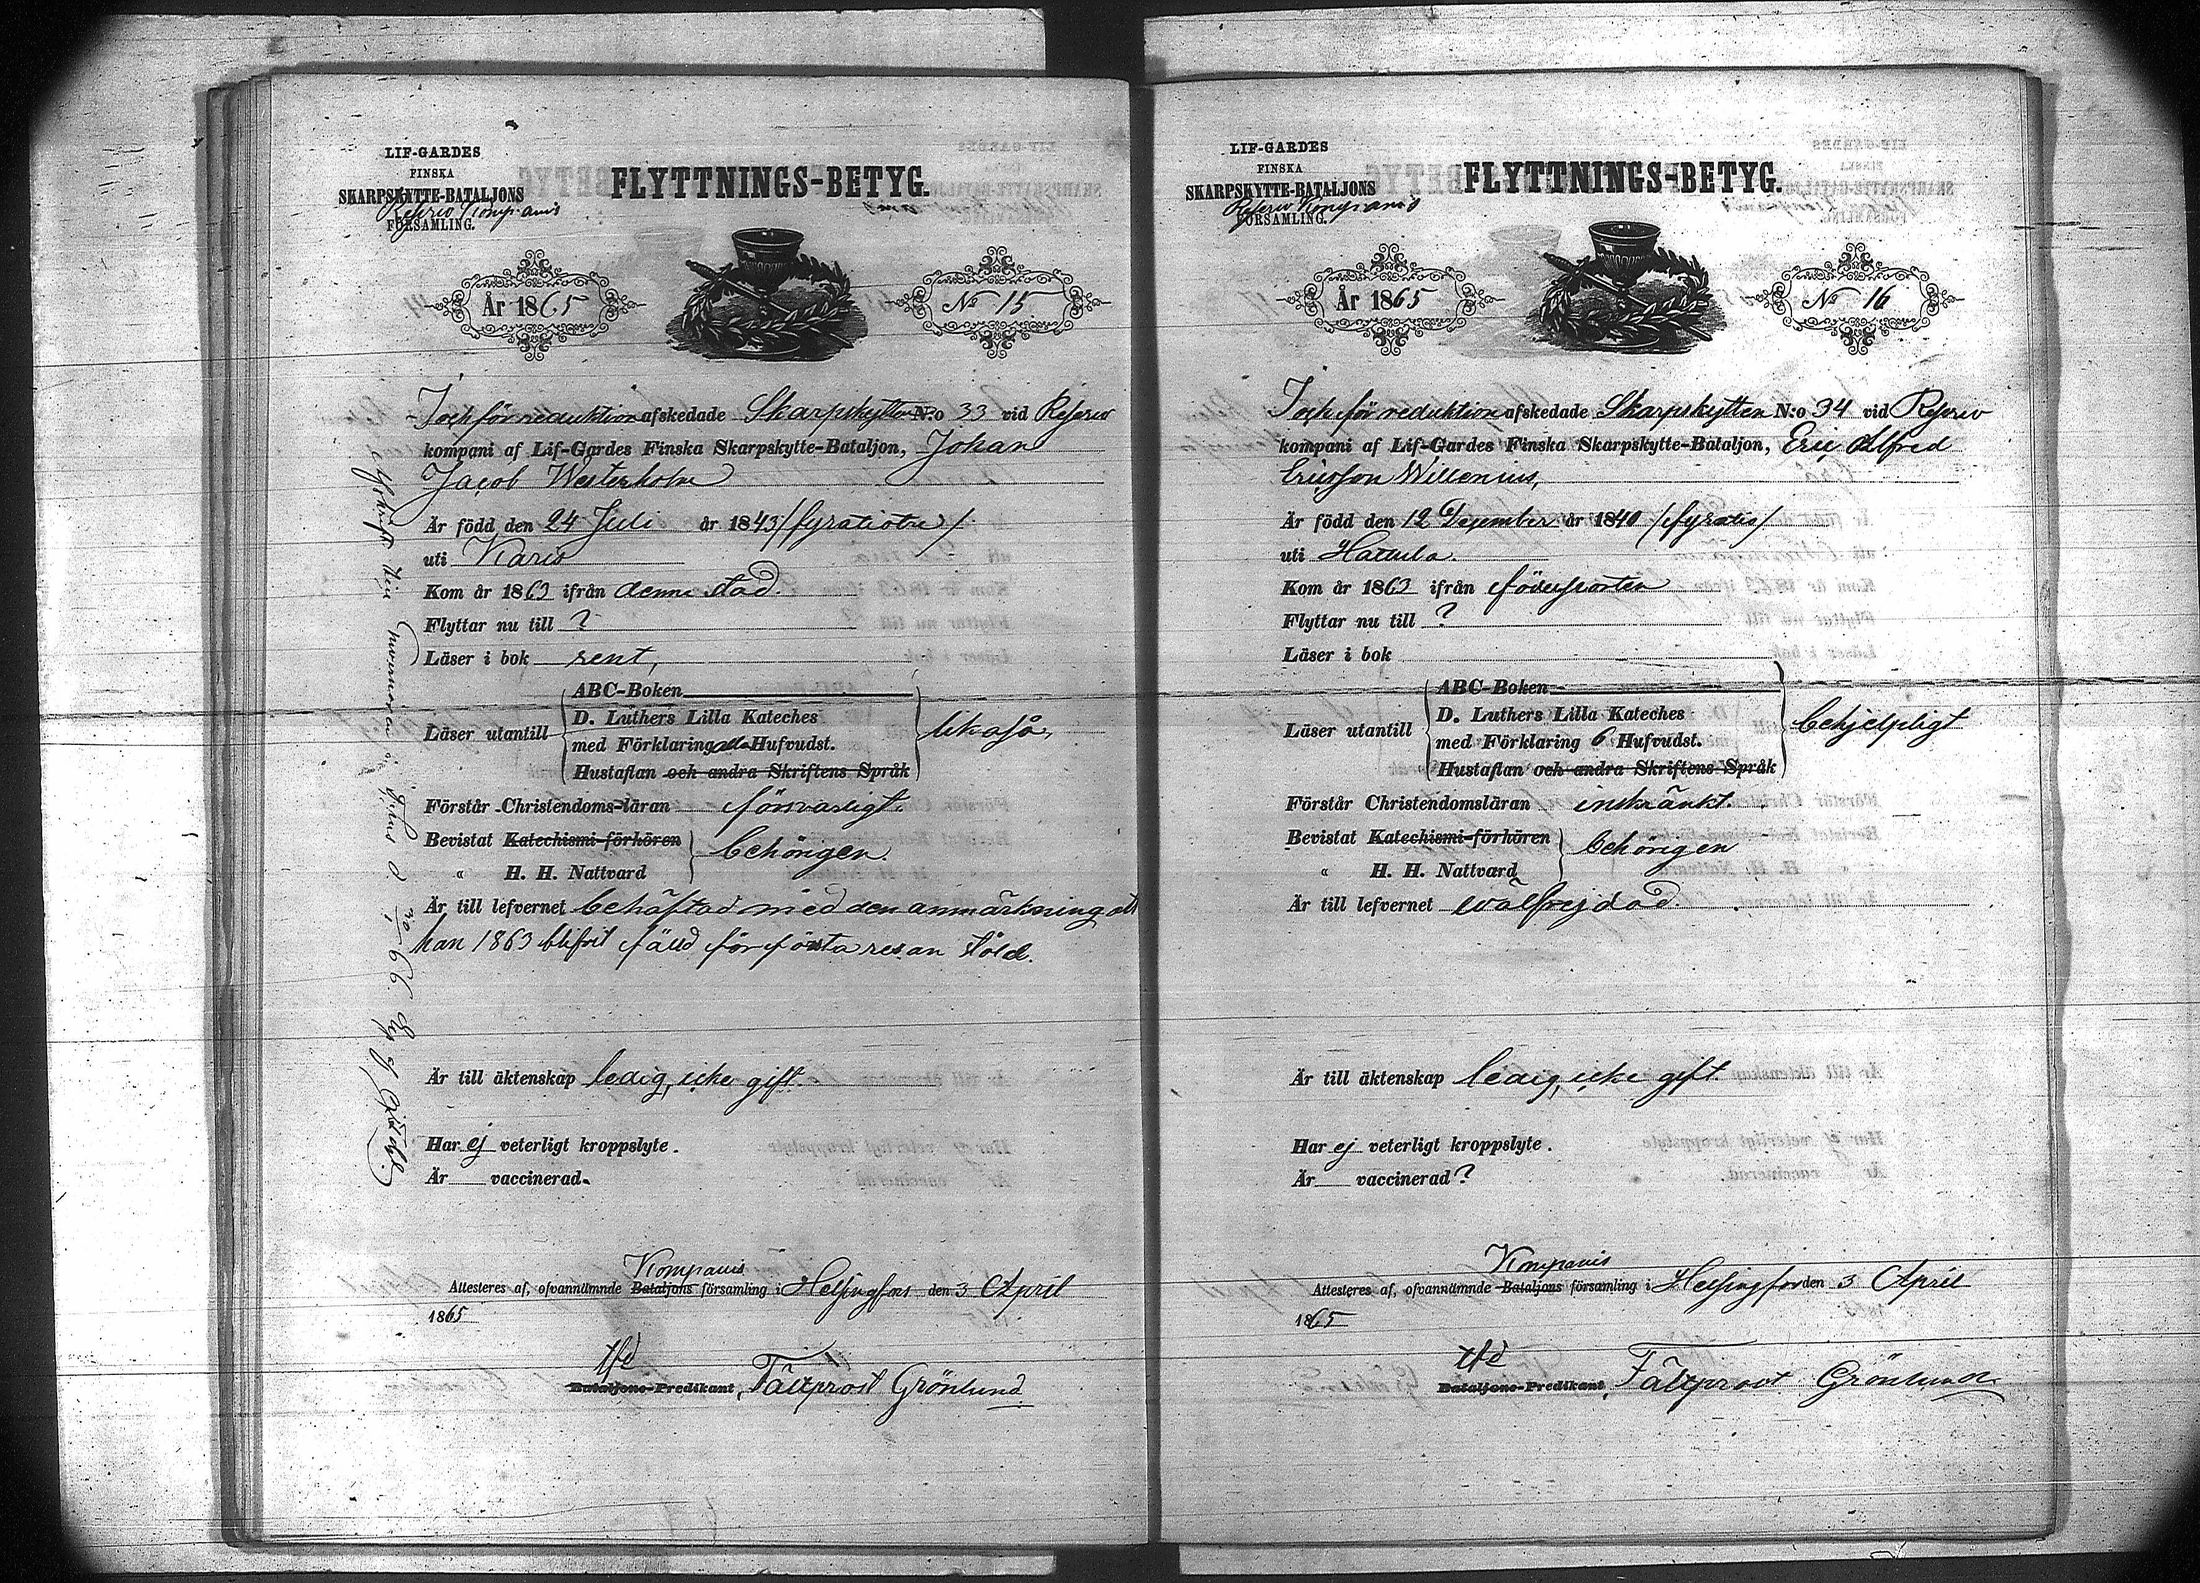 LIF-GARDES
FINSKA
SKARPSKYTTE-BATALJONS
Reserv Kompanis
FÖRSAMLING.
FLYTTNINGS-BETYG.
År 1865
No 15
I och för reduktion afskedade Skarpskytten N:o 33 vid Reserv
kompani af Lif-Gardes Finska Skarpskytte-Bataljon, Johan
Jacob Westerholm
Är född den 24 Juli år 1843 /fyratiotre/
uti Karis
Kom år 1863 ifrån denne stad.
Flyttar nu till ?
Läser i bok rent,
ABC-Boken
D. Luthers Lilla Kateches
Läser utantill
med Förklaring alla Hufvudst.
likaså,
Hustaflan och andra Skriftens Språk
Förstår Christendoms-läran försvarligt.
Bevistat Katechismi-förhören
behörigen.
" H. H. Nattvard
Är till lefvernet behäftad med den anmärkning att
han 1863 blifvit fälld för första resan stöld.
Är till äktenskap ledig, icke gift.
Har ej veterligt kroppslyte.
Är vaccinerad.
Kompanis
Attesteras af, ofvannämnde Bataljons församling i Helsingfors den 3 April
1865
tfd
Bataljons-Predikant, Fältprost Grönlund
LIF-GARDES
FINSKA
SKARPSKYTTE-BATALJONS
Reserv Kompanis
FÖRSAMLING.
FLYTTNINGS-BETYG.
År 1865
No 16
I och för reduktion afskedade Skarpskytten N:o 34 vid Reserv
kompani af Lif-Gardes Finska Skarpskytte-Bataljon, Eric Alfred
Ericsson Willenius,
Är född den 12 December år 1840 /fyratio/
uti Hattula.
Kom år 1863 ifrån födelseorten
Flyttar nu till ?
Läser i bok
ABC-Boken
D. Luthers Lilla Kateches
Läser utantill
med Förklaring 6 Hufvudst.
behjelpligt
Hustaflan och andra Skriftens Språk
Förstår Christendomsläran inskränkt.
Bevistat Katechismi-förhören
behörigen
" H. H. Nattvard
Är till lefvernet wälfrejdad.
Är till äktenskap ledig, icke gift.
Har ej veterligt kroppslyte.
Är vaccinerad ?
Kompanis
Attesteras af, ofvannämnde Bataljons församling i Helsingfors den 3 April
1865
tfd
Bataljons-Predikant, Fältprost Grönlund